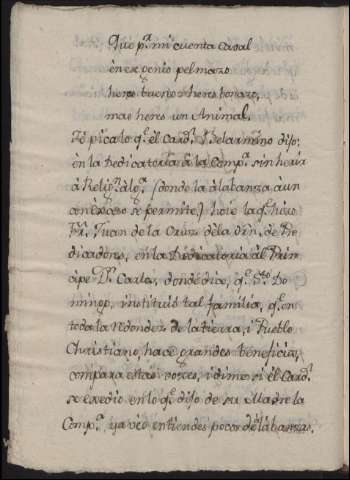 Que p.ª mi cuenta cabal
en ex genio pelmazo
heres bueno, heres bonazo,
mas heres un Animal.
Te pica lo q.e el Card.l Belarmino dijo,
en la Dedicatoria à la Comp.ª sin herir
à Relig.n alg.ª (donde la alabanza aun
con exceso se permite,) hoie la q.e hizo
Fr. Juan de la Cruz de la òrn. de Pre
dicadores, en la Dedicatoria àl Prin
cipe D.n Carlos, donde dice, q.e S.to Do
mingo, instituiò tal familia, q.e en
toda la redondez de la tierra, i Pueblo
Christiano, hace grandes beneficios,
compara estas voces, i dime, si el Card.l
se excedio en lo q.e dijo de su Madre la
Comp.ª, ya veo entiendes poco de alabanzas.